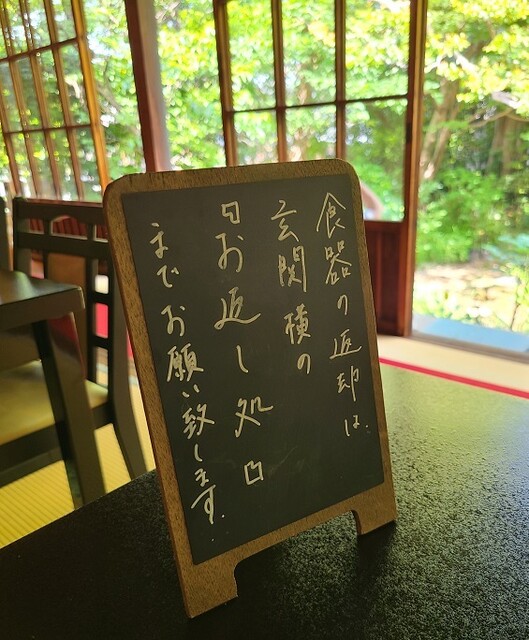 食器の返却は、
玄関横の
『お返し処』
までお願い致します。